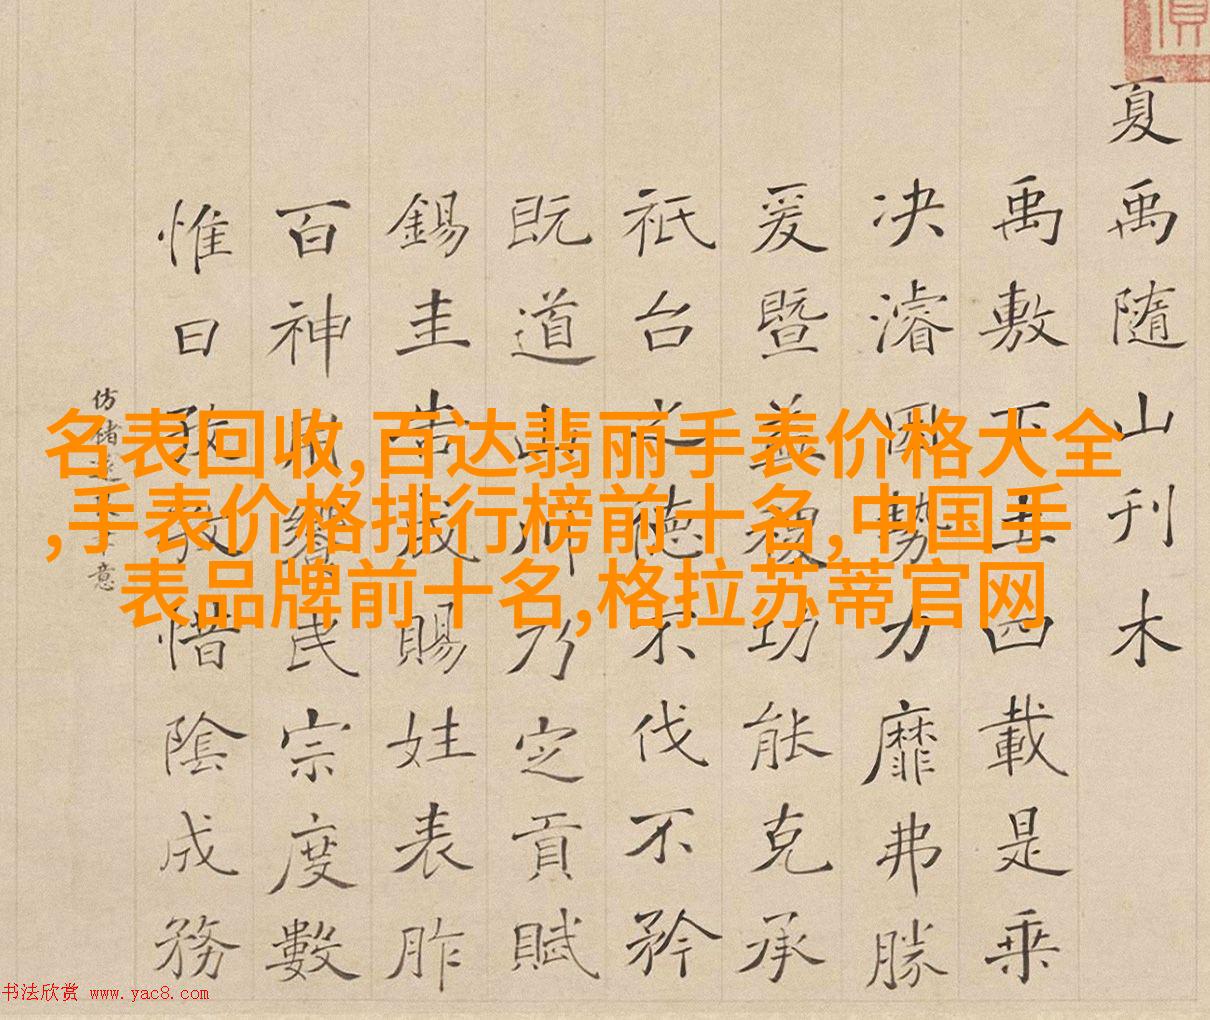 夏禹隨山刊木
禹敷下土四載是乘
决濬因勢力靡弗勝
爰暨益稷功能克承
祇台之德不伐不矜
既道山川乃定貢賦
錫圭告成賜姓表胙
百神饗民宗度數
惟日孜孜惜陰成務
仿褚遂意
名表回收,百达翡丽手表价格大全
,手表价格排行榜前十名,中国手
表品牌前十名,格拉苏蒂官网
书法欣赏 www.yac8.com